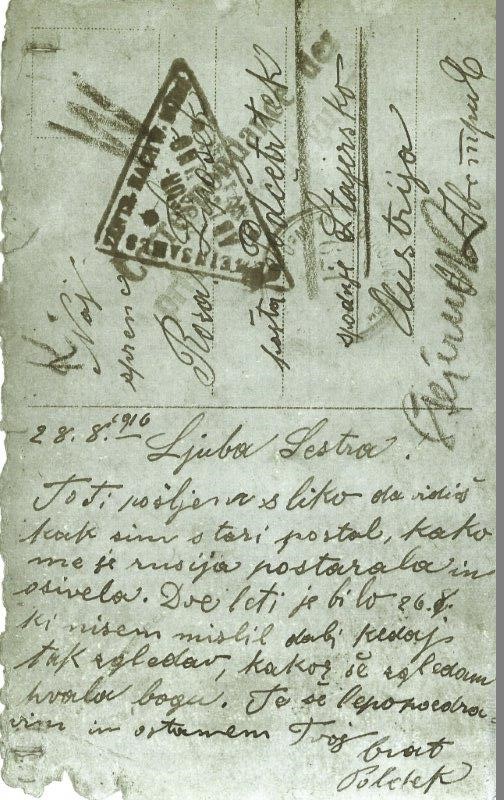 28. 8. 1916
Ljuba Sestra.
To ti pošljem sliko da vidiš
kak sim stari postal, kako
me je rusija postarala in
osivela. Dve leti je bilo 26. 8.
ki nisem mislil dabi kedaj
tak zgledav, kakor še zgledam
hvala bogu. Te še lepo pozdra-
vim in ostanem Tvoj
brat
Polcek
K.
Naj
spreme
Rosa
pošta Polčetrtek
spodnje Štajersko
Austrija